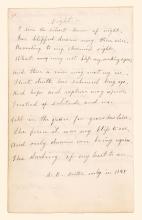 Night.
I love the silent hour of night,
For blissful dreams may then arise,
Revealing to my charmed sight
What may not bless my waking eyes.
And then a voice may meet my ear,
That death has silenced long ago,
And hope and rapture may appear
Instead of solitude and woe.
Cold in the grave for years has lain
The form it was my bliss to see,
And only dreams can bring again
The darling of my heart to me.